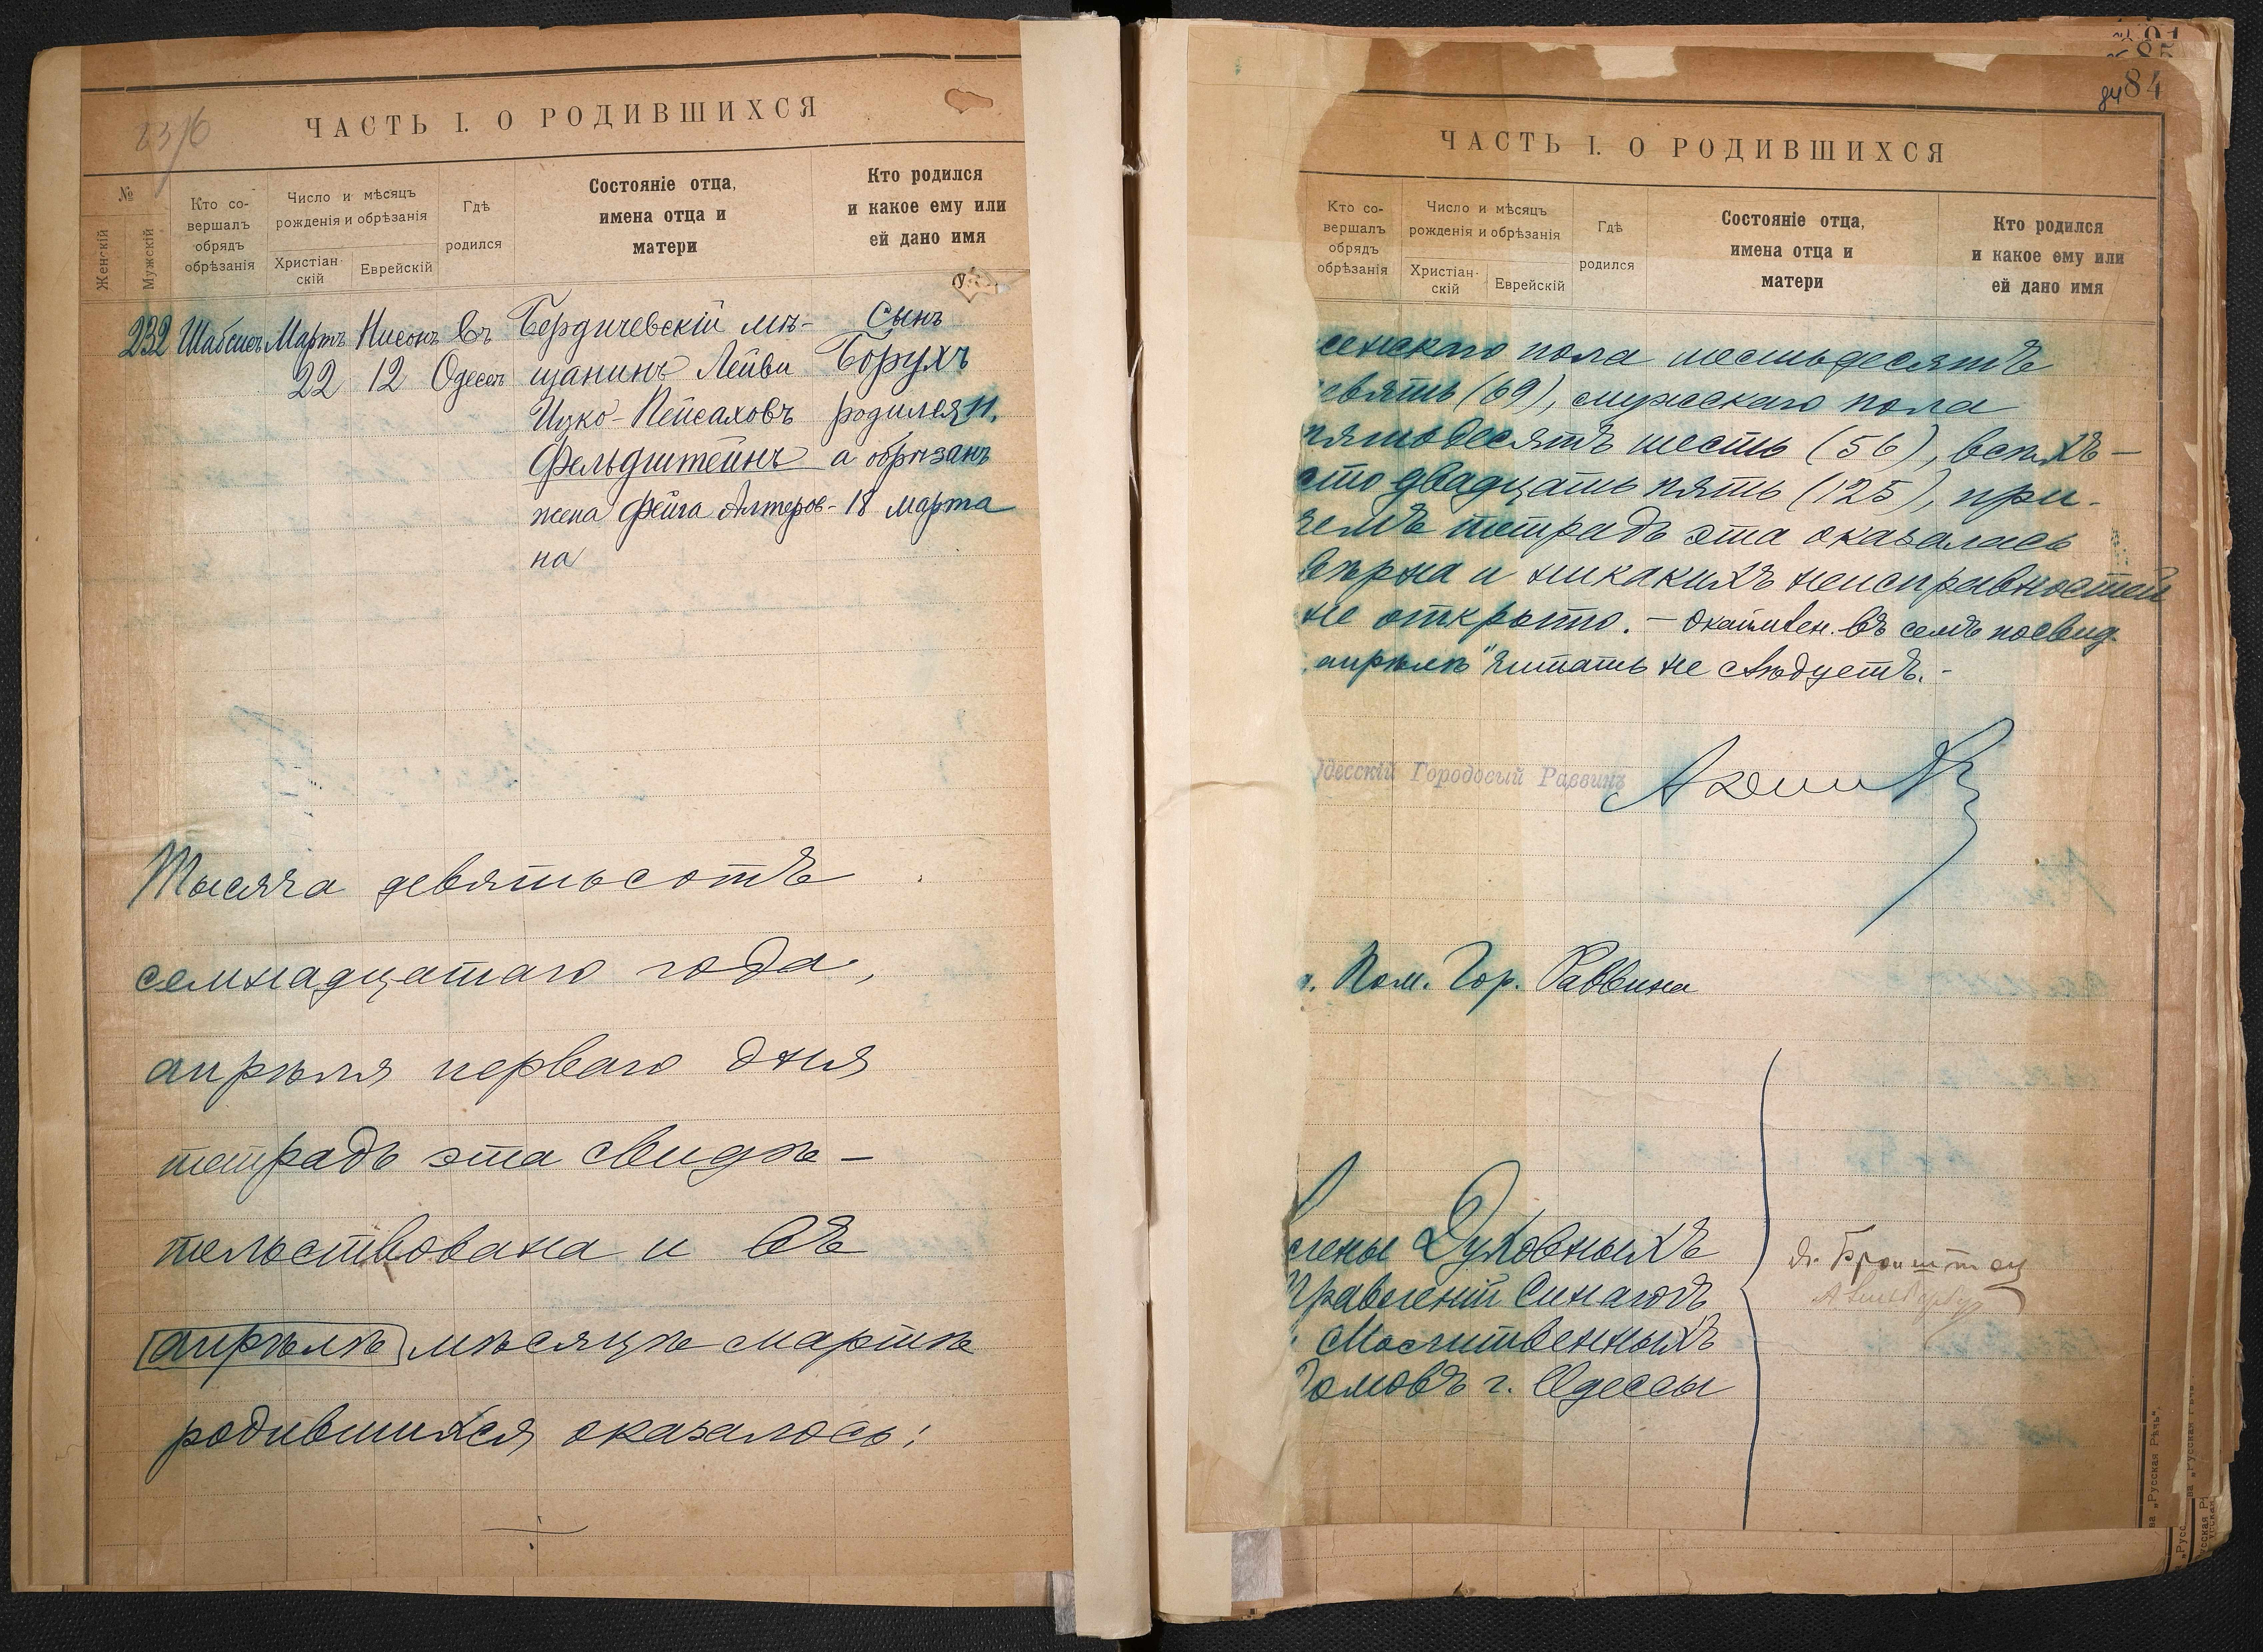 ЧАСТЬ I. О РОДИВШИХСЯ
№
Женскій
Мужскій
Кто со-
вершалъ
обрядъ
обрѣзанія
Число и мѣсяцъ
рожденія и обрѣзанія
Христіан-
скій
Еврейскій
Гдѣ
родился
Состояніе отца,
имена отца и
матери
Кто родился
и какое ему или
ей дано имя
232 Шабсисъ Мартъ Нисонъ въ Бердичевскій мѣ- Сынъ
22 12 Одессѣ щанинъ Лейви Борухъ
Ицко-Пейсаховъ родился 11.
Фельдштейнъ а обрѣзанъ
жена Фейга Алтеров- 18 марта
на
Тысяча девятьсотъ
семнадцатаго года,
апрѣля перваго дня
тетрадь эта свидѣ-
тельствована и въ
апрѣлѣ мѣсяцѣ мартѣ
родившихся оказалось:
84 84
ЧАСТЬ I. О РОДИВШИХСЯ
Кто со-
вершалъ
обрядъ
обрѣзанія
Число и мѣсяцъ
рожденія и обрѣзанія
Христіан-
скій
Еврейскій
Гдѣ
родился
Состояніе отца,
имена отца и
матери
Кто родился
и какое ему или
ей дано имя
женскаго пола шестьдесятъ
девять (69), мужскаго пола
пятьдесятъ шесть (56), всѣхъ -
сто двадцать пять (125), при-
чемъ тетрадь эта оказалась
вѣрна и никакихъ неисправностей
не открыто. - Окаймлен. въ семъ посвид.
апрѣлѣ" читать не слѣдуетъ. -
Одесскій Городовый Раввинъ
Пом. Гор. Раввина
Члены Духовныхъ
Правленій Синагогъ
Молитвенныхъ
Домовъ г. Одессы